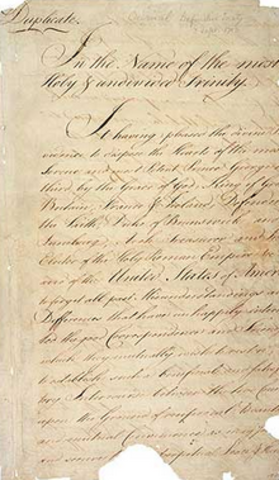 Duplicate.
In the Name of the most
Holy & undivided Trinity.
It having pleased the divine
vidence to dispose the Hearts of the mos
Serene and most Potent Prince George
third, by the Grace of God, King of G
Britain, France & Ireland, Defender
the Faith, Duke of Brunswick and
Lunebourg, Arch Treasurer and
Elector of the Holy Roman Empire
and of the United States of Amer
to forget all past Misunderstandings and
Differences that have unhappily
ted the good Correspondence and Frien
which they mutually wish to
to establish such a beneficial and satisfac
tory Intercourse between the two Coun
upon the Ground of reciprocal Advan
and mutual Convenience as may
and secure to both perpetual Peace & H